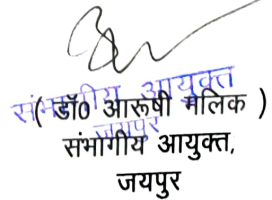 संभागीय आयुक्त
जयपुर
( डॉ0 आरूषी मलिक )
संभागीय आयुक्त,
जयपुर